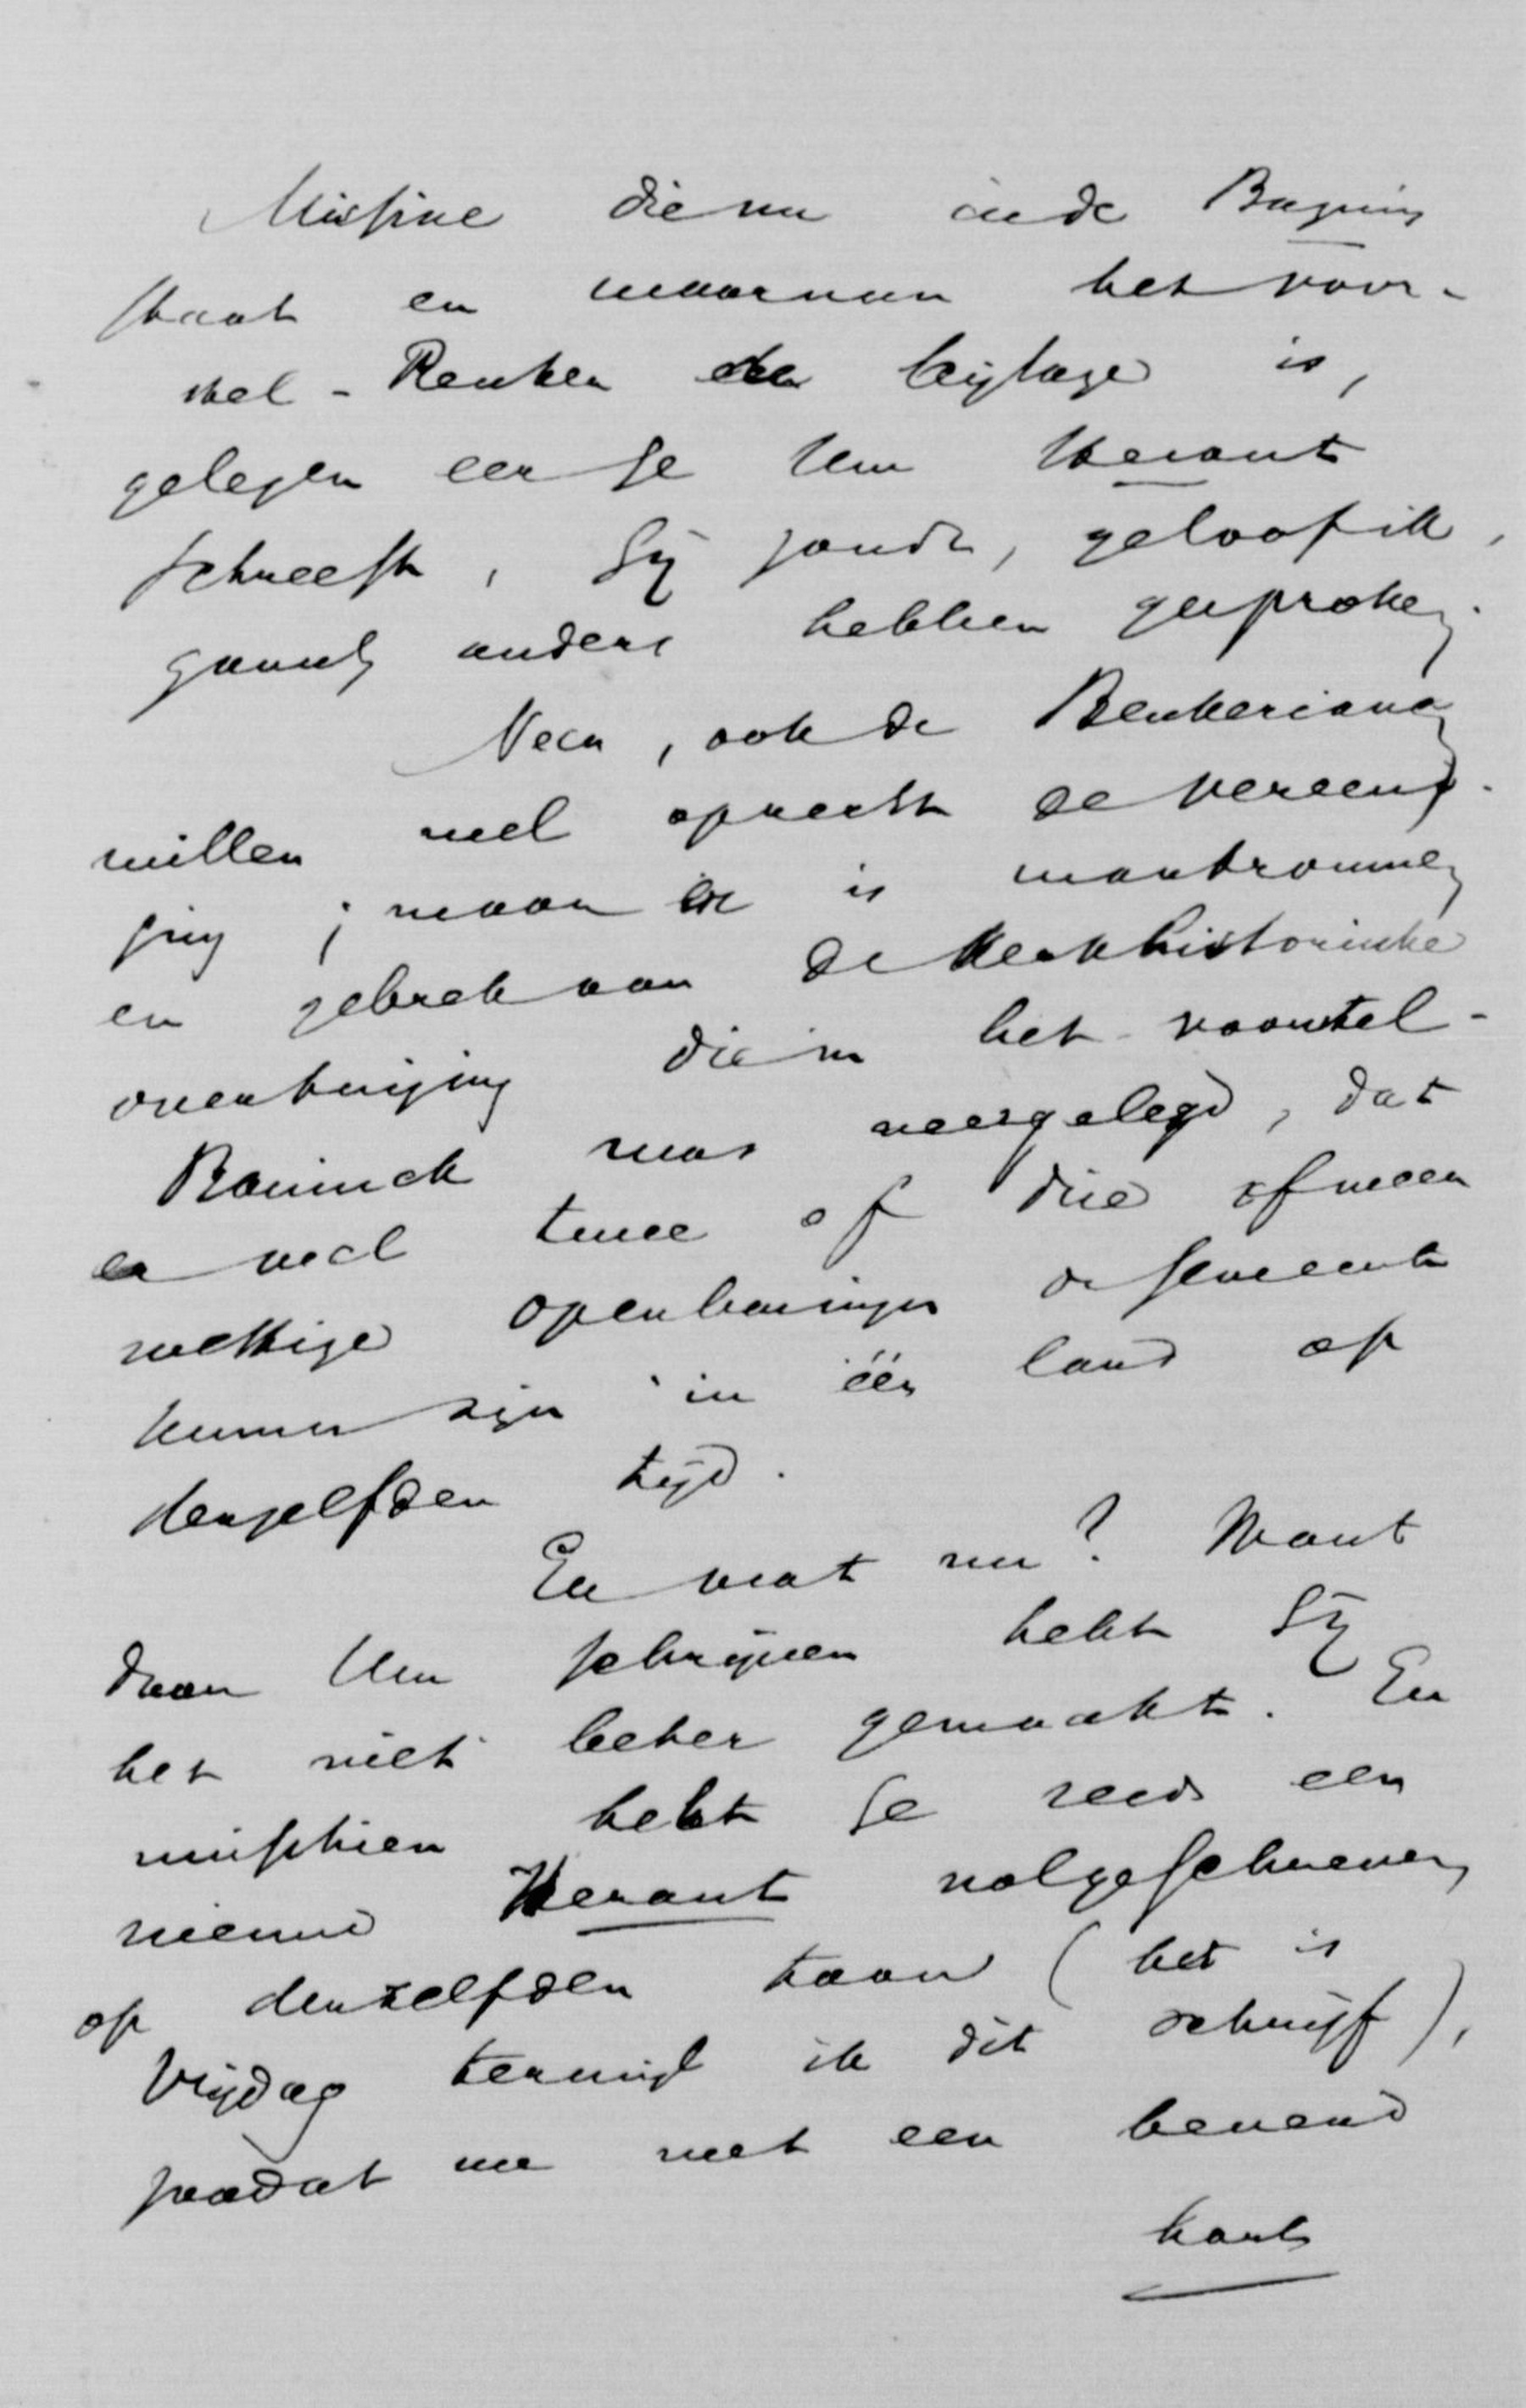 Missive die nu in de Bazuin
staat en waarvan het voor-
stel-Beuker de bijlage is,
gelezen eer Ge Uw Heraut
schreeft, Gij zoudt, geloof ik,
gansch anders hebben gesproken.
Neen, ook de Beukerianen
willen wel oprecht de vereeni-
ging; maar er is wantrouwen
en gebrek aan de kerkhistorische
overtuiging die in het voorstel-
Bavinck was neergelegd, dat
er wel twee of drie of meer
wettige openbaringen der gemeente
kunnen zijn in één land op
denzelfden tijd.
En wat nu? Want
door Uw schrijven hebt Gij
het niet beter gemaakt. En
misschien hebt Ge reeds een
nieuwe Heraut volgeschreven
op denzelfden toon (het is
Vrijdag terwijl ik dit schrijf),
zoodat we met een bevend
hart